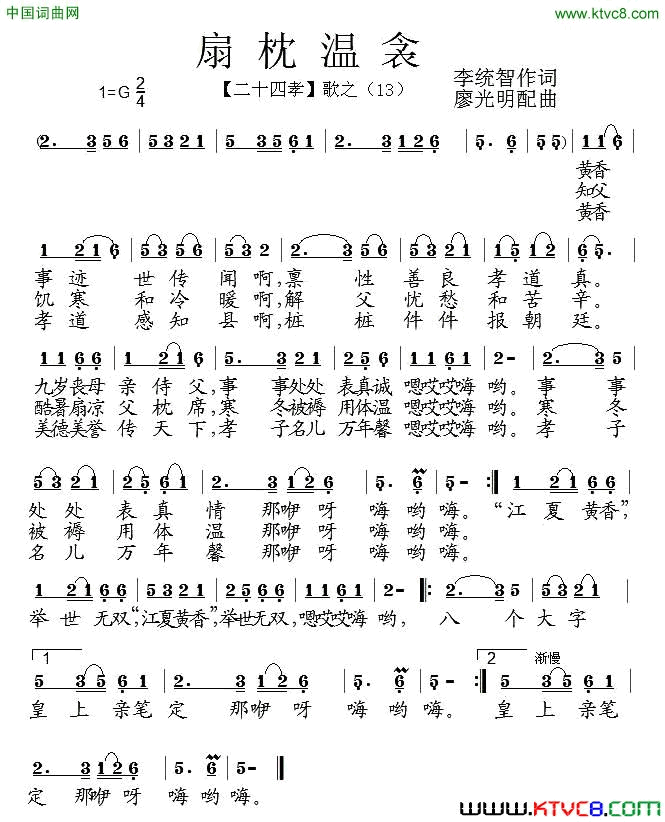 中国词曲网
http://www.ktvc8.com
www.ktvc8.com
扇枕温衾
1=G 2/4
【二十四孝】歌之（13）
李统智作词
廖光明配曲
(2. 3 5 6 | 5 3 2 1 | 5 3 5 6 1 | 2. 3 1 2 6 | 5. 6 | 5 5) | 1 1 6 |
黄香
知父
黄香
1 2 1 6 | 5 3 5 6 | 5 3 2 | 2. 3 5 | 5 5 3 2 1 | 1 5 1 2 | 6 5. |
事迹世传闻啊,禀性善良孝道真。
饥寒和冷暖啊,解父忧愁和苦辛。
孝道感知县啊,桩桩件件报朝廷。
1 1 6 6 | 1 2 1 6 | 5. 3 | 2 3 2 1 6 6 | 1 1 6 1 | 2 - | 2. 3 |
九岁丧母亲侍父,事事处处表真诚嗯哎哎嗨哟。事事
酷暑扇凉父枕席,寒冬被褥用体温嗯哎哎嗨哟。寒冬
美德美誉传天下,孝子名儿万年馨嗯哎哎嗨哟。孝子
5 3 2 1 | 2 5 6 1 | 2. 3 1 2 6 | 5. 6 | 5 - :| 1 2 1 6 6 |
处处表真情那咿呀嗨哟嗨。“江夏黄香”,
被褥用体温那咿呀嗨哟嗨。
名儿万年馨那咿呀嗨哟嗨。
1 2 1 6 6 | 5 3 2 1 | 2 5 6 6 | 1 1 6 1 | 2 - |: 2. 3 5 | 5 3 2 1 |
举世无双”,“江夏黄香”,举世无双”,嗯哎哎嗨哟,八个大字
1
2
渐慢
5 3 5 6 1 | 2. 3 1 2 6 | 5. 6 | 5 - :| 5 3 5 6 1 |
皇上亲笔定那咿呀嗨哟嗨。皇上亲笔
2. 3 1 2 6 | 5. 6 | 5 - ‖
定那咿呀嗨哟嗨。
WWW.KTVC8.COM